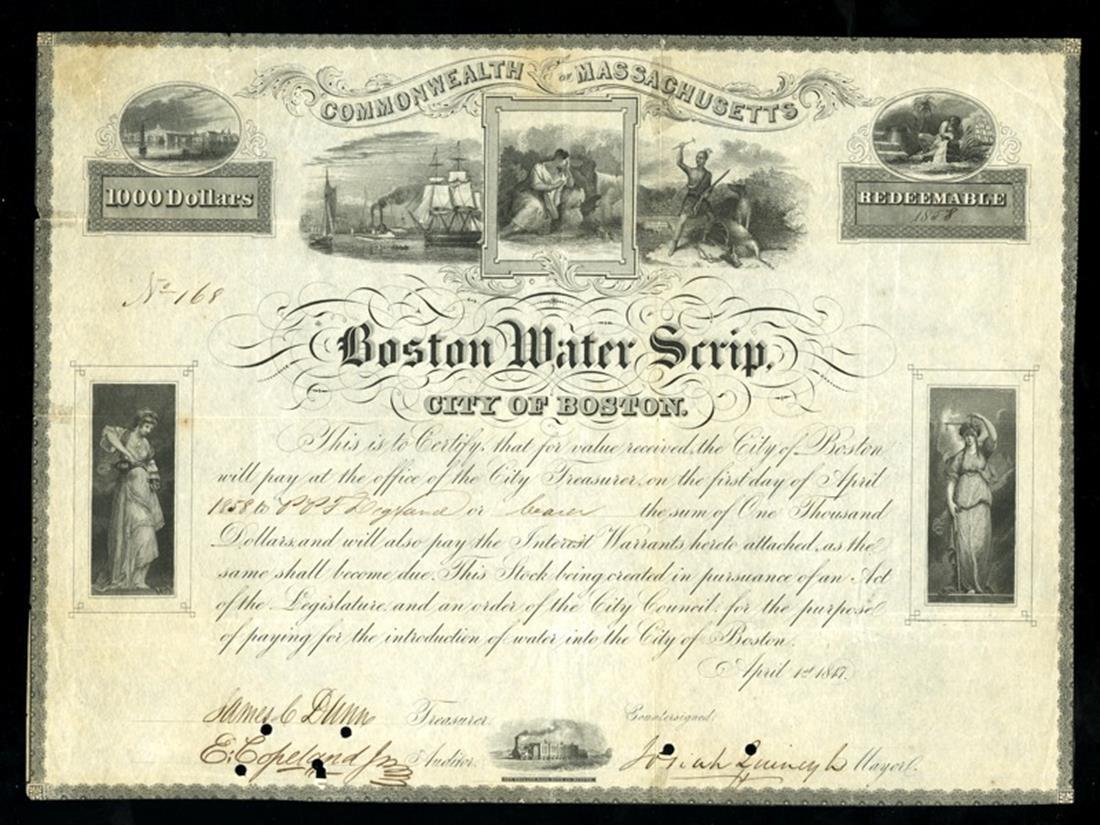 COMMONWEALTH OF MASSACHUSETTS
1000 Dollars
REDEEMABLE
1858
No 168
Boston Water Scrip.
CITY OF BOSTON.
This is to Certify, that for value received, the City of Boston
will pay at the office of the City Treasurer, on the first day of April
1858 to P P F Degrand or bearer the sum of One Thousand
Dollars, and will also pay the Interest Warrants hereto attached, as the
same shall become due. This Stock being created in pursuance of an Act
of the Legislature, and an order of the City Council, for the purpose
of paying for the introduction of water into the City of Boston.
April 1st 1847.
James C Dunn Treasurer. Countersigned:
E. Copeland Jr Auditor. Josiah Quincy Jr Mayor.